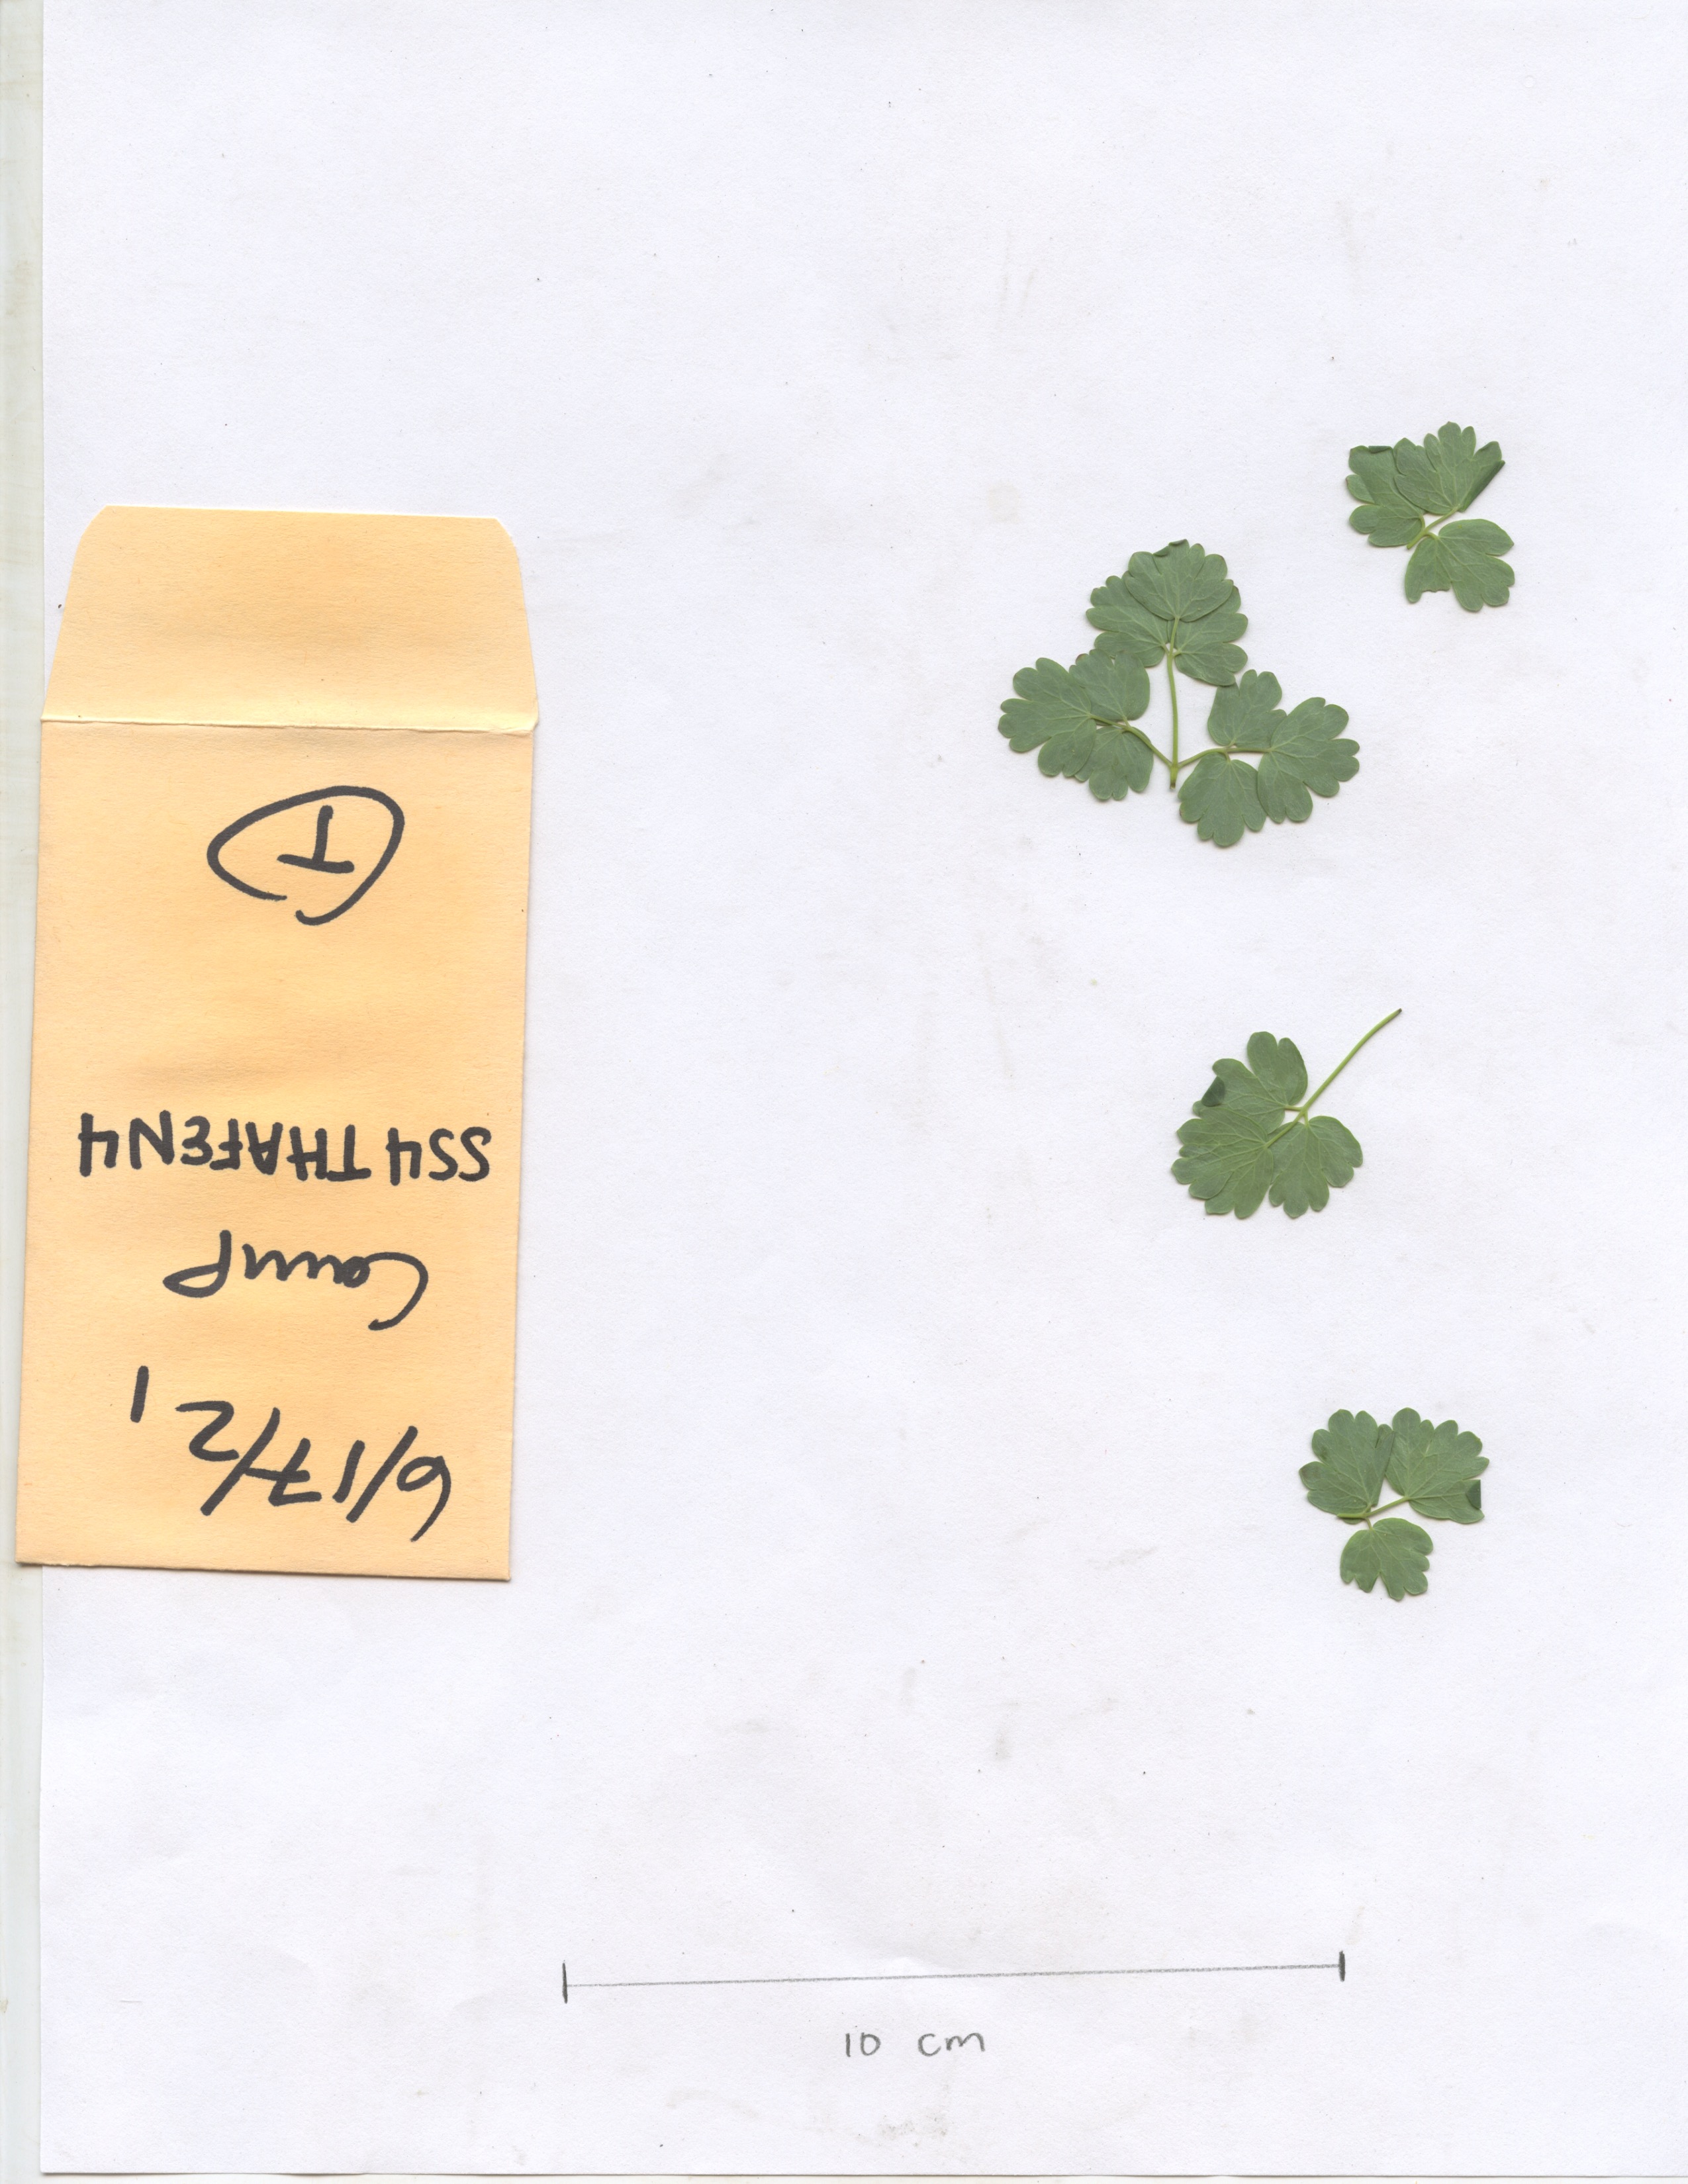 6/17/21
Camp
SS4 THAFEN4
T
10 cm